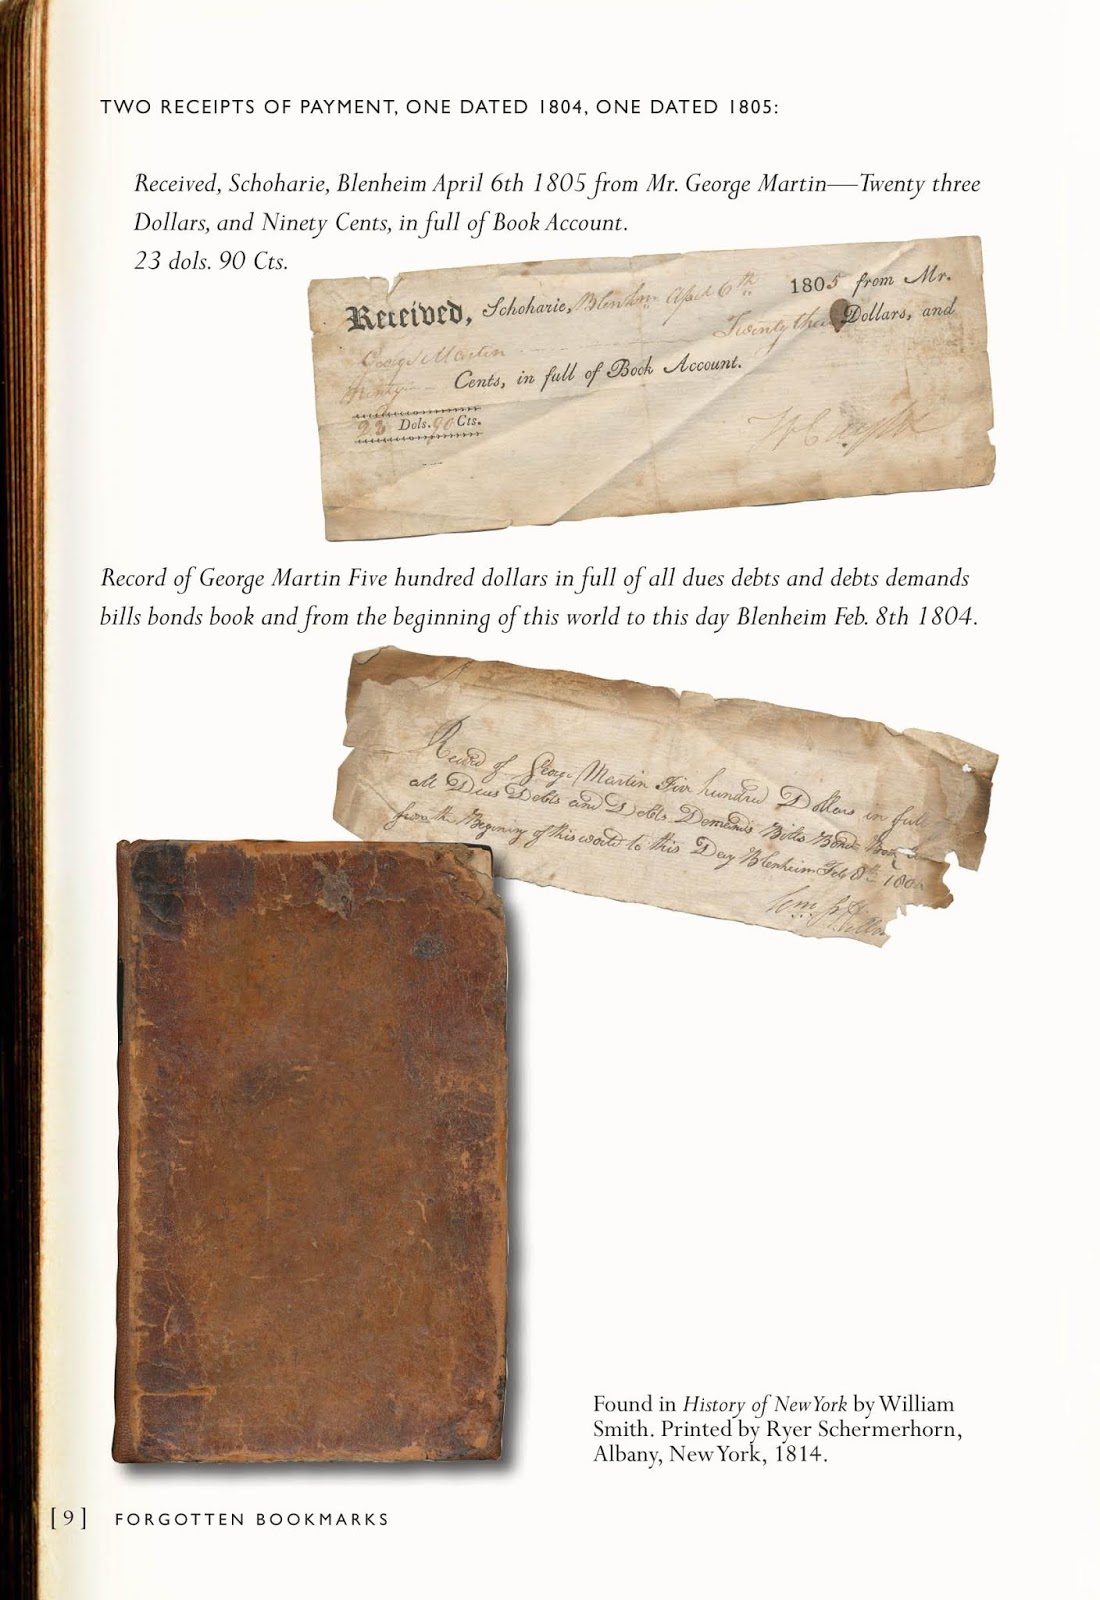 TWO RECEIPTS OF PAYMENT, ONE DATED 1804, ONE DATED 1805:
Received, Schoharie, Blenheim April 6th 1805 from Mr. George Martin—Twenty three
Dollars, and Ninety Cents, in full of Book Account.
23 dols. 90 Cts.
Received, Schoharie, Blenhm April 6th 1805 from Mr.
George Martin Twenty three Dollars, and
Ninety Cents, in full of Book Account.
23 Dols. 90 Cts.
Record of George Martin Five hundred dollars in full of all dues debts and debts demands
bills bonds book and from the beginning of this world to this day Blenheim Feb. 8th 1804.
Recvd of George Martin Five hundred Dollars in full
all Dues Debts and Debts Demands Bills Bonds Book
from the Beginning of this world to this Day Blenheim Feb 8th 180
Found in History of New York by William
Smith. Printed by Ryer Schermerhorn,
Albany, New York, 1814.
[ 9 ] FORGOTTEN BOOKMARKS